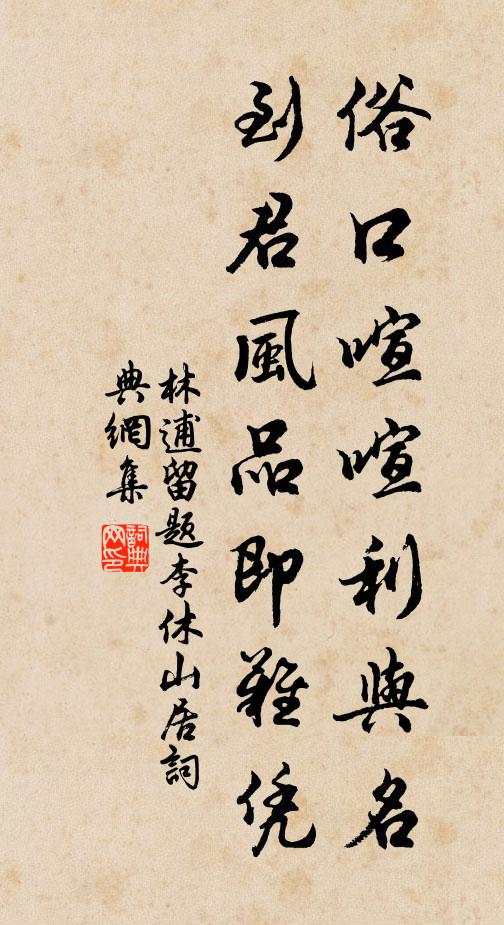 俗口喧喧利與名
到君風品即難凭
林逋留題李休山居詞
典網集
詞典網印